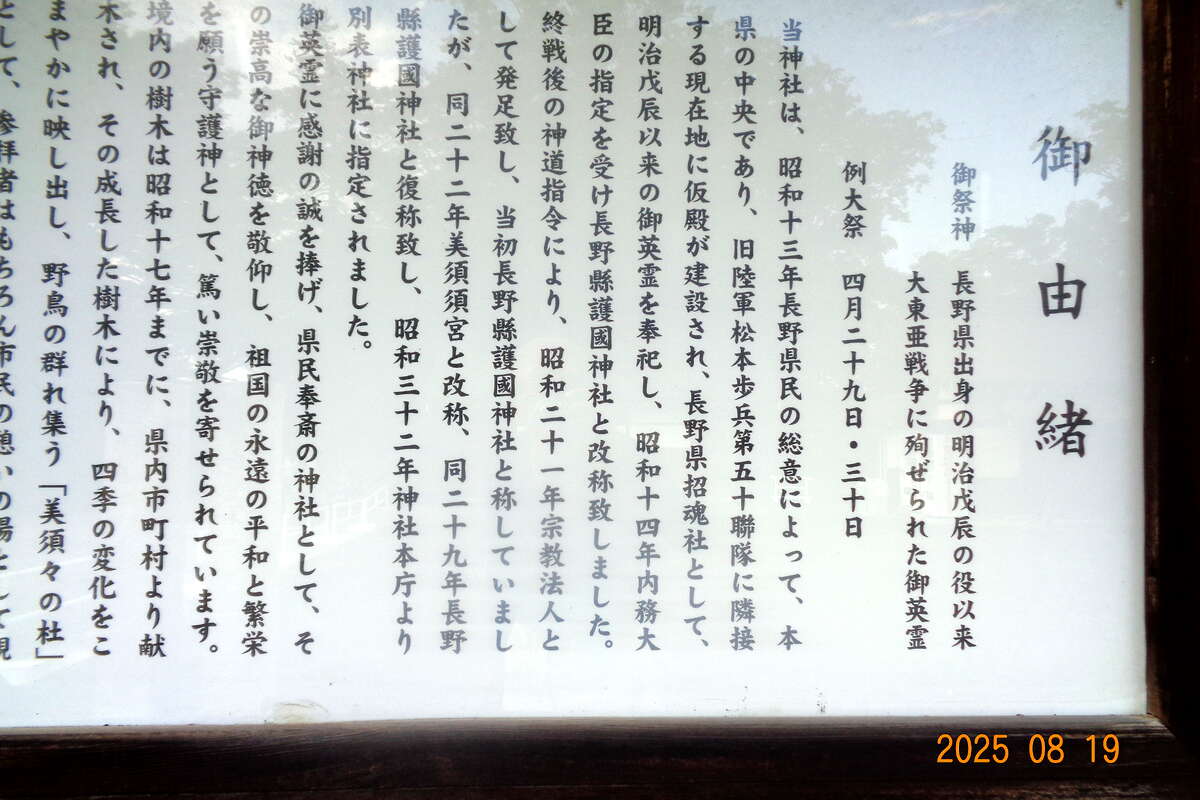 御由緒
御祭神 長野県出身の明治戊辰の役以来
大東亜戦争に殉ぜられた御英霊
例大祭 四月二十九日・三十日
当神社は、昭和十三年長野県民の総意によって、本
県の中央であり、旧陸軍松本歩兵第五十聯隊に隣接
する現在地に仮殿が建設され、長野県招魂社として、
明治戊辰以来の御英霊を奉祀し、昭和十四年内務大
臣の指定を受け長野縣護國神社と改称致しました。
終戦後の神道指令により、昭和二十一年宗教法人と
して発足致し、当初長野縣護國神社と称していまし
たが、同二十二年美須須宮と改称、同二十九年長野
縣護國神社と復称致し、昭和三十二年神社本庁より
別表神社に指定されました。
御英霊に感謝の誠を捧げ、県民奉斎の神社として、そ
の崇高な御神徳を敬仰し、祖国の永遠の平和と繁栄
を願う守護神として、篤い崇敬を寄せられています。
境内の樹木は昭和十七年までに、県内市町村より献
木され、その成長した樹木により、四季の変化をこ
まやかに映し出し、野鳥の群れ集う「美須々の杜」
として、参拝者はもちろん市民の憩いの場として親
2025 08 19